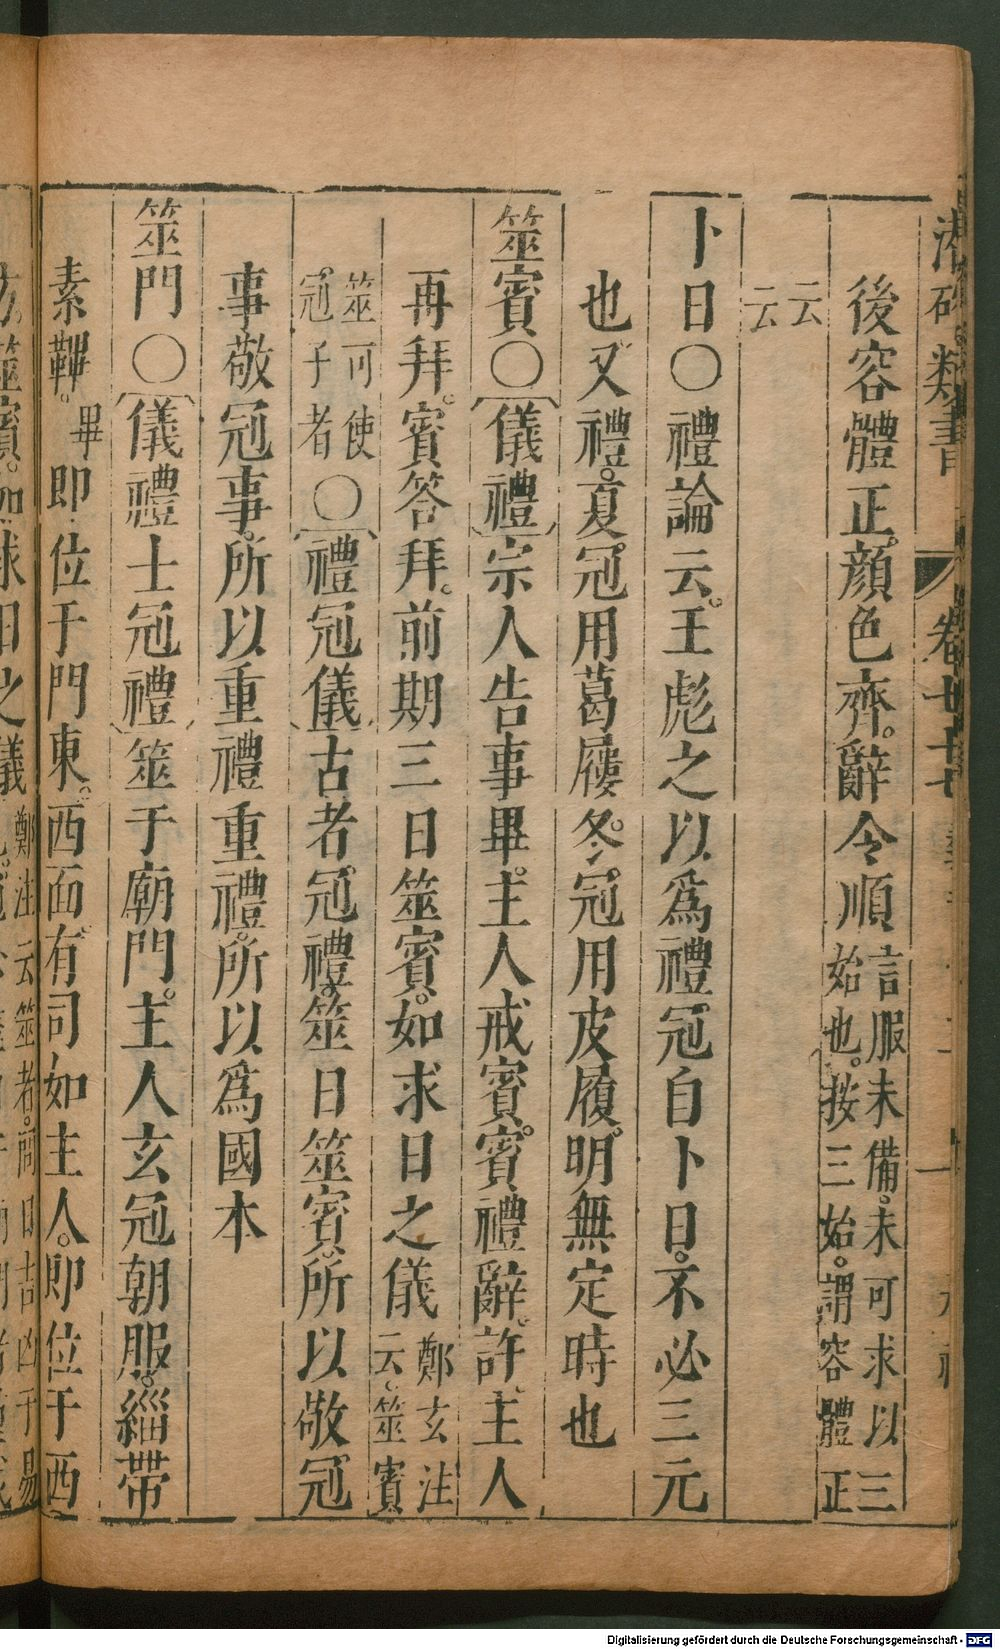 類書 卷七十七
後容體正。顏色齊。辭令順言服未備。未可求以三始也。按三始。謂容體正
云云
卜日〇禮論云。王彪之以爲禮。冠自卜日。不必三元
也又禮。夏冠用葛屨。冬。冠用皮履。明無定時也
筮賓〇儀禮宗人告事畢。主人戒賓。賓禮辭。許。主人
再拜。賓答拜。前期三日筮賓。如求日之儀鄭玄注云。筮賓
筮可使冠子者〇禮冠儀古者。冠禮。筮日筮賓。所以敬冠
事敬冠事。所以重禮重禮。所以爲國本
筮門〇儀禮士冠禮筮于廟門。主人玄冠朝服。緇帶
素鞸。畢即位于門東。西面。有司如主人。即位于西
筮賓。如求日之儀
鄭注云筮者。
Digitalisierung gefördert durch die Deutsche Forschungsgemeinschaft - DFG